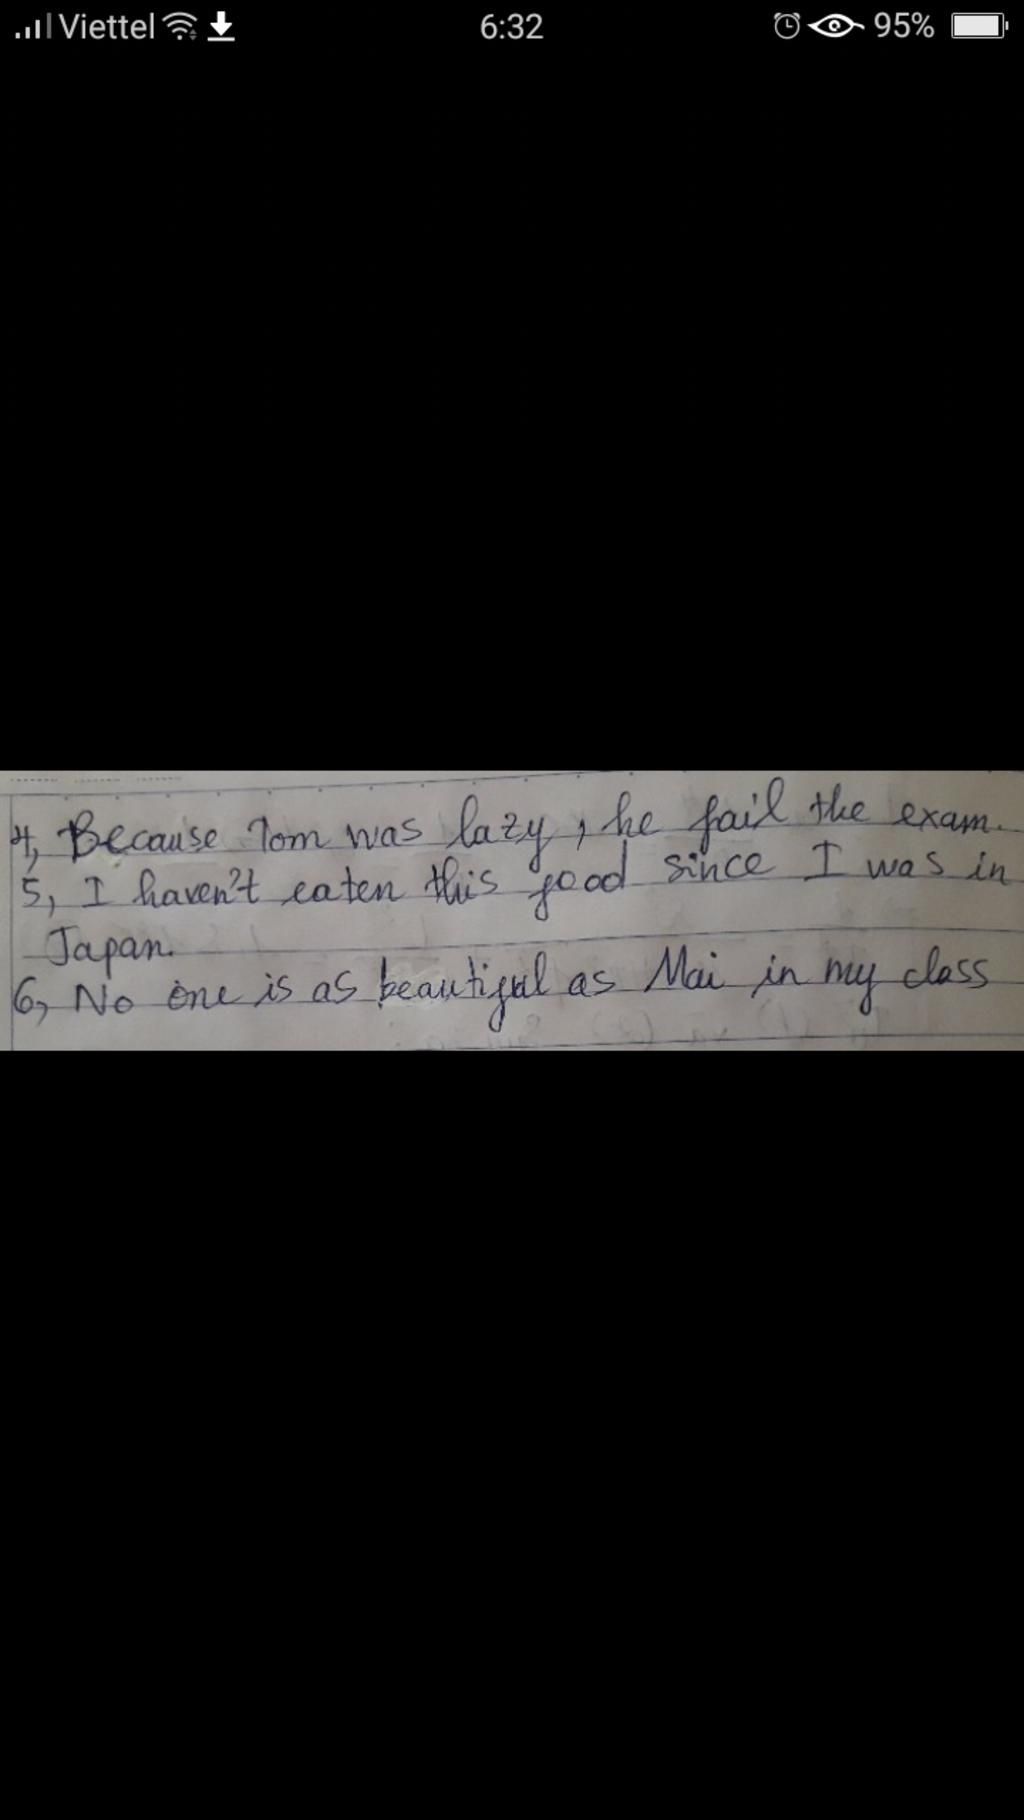 Viettel 6:32 95%
4, Because Tom was lazy, he fail the exam.
5, I haven't eaten this food since I was in
Japan.
6, No one is as beautiful as Mai in my class